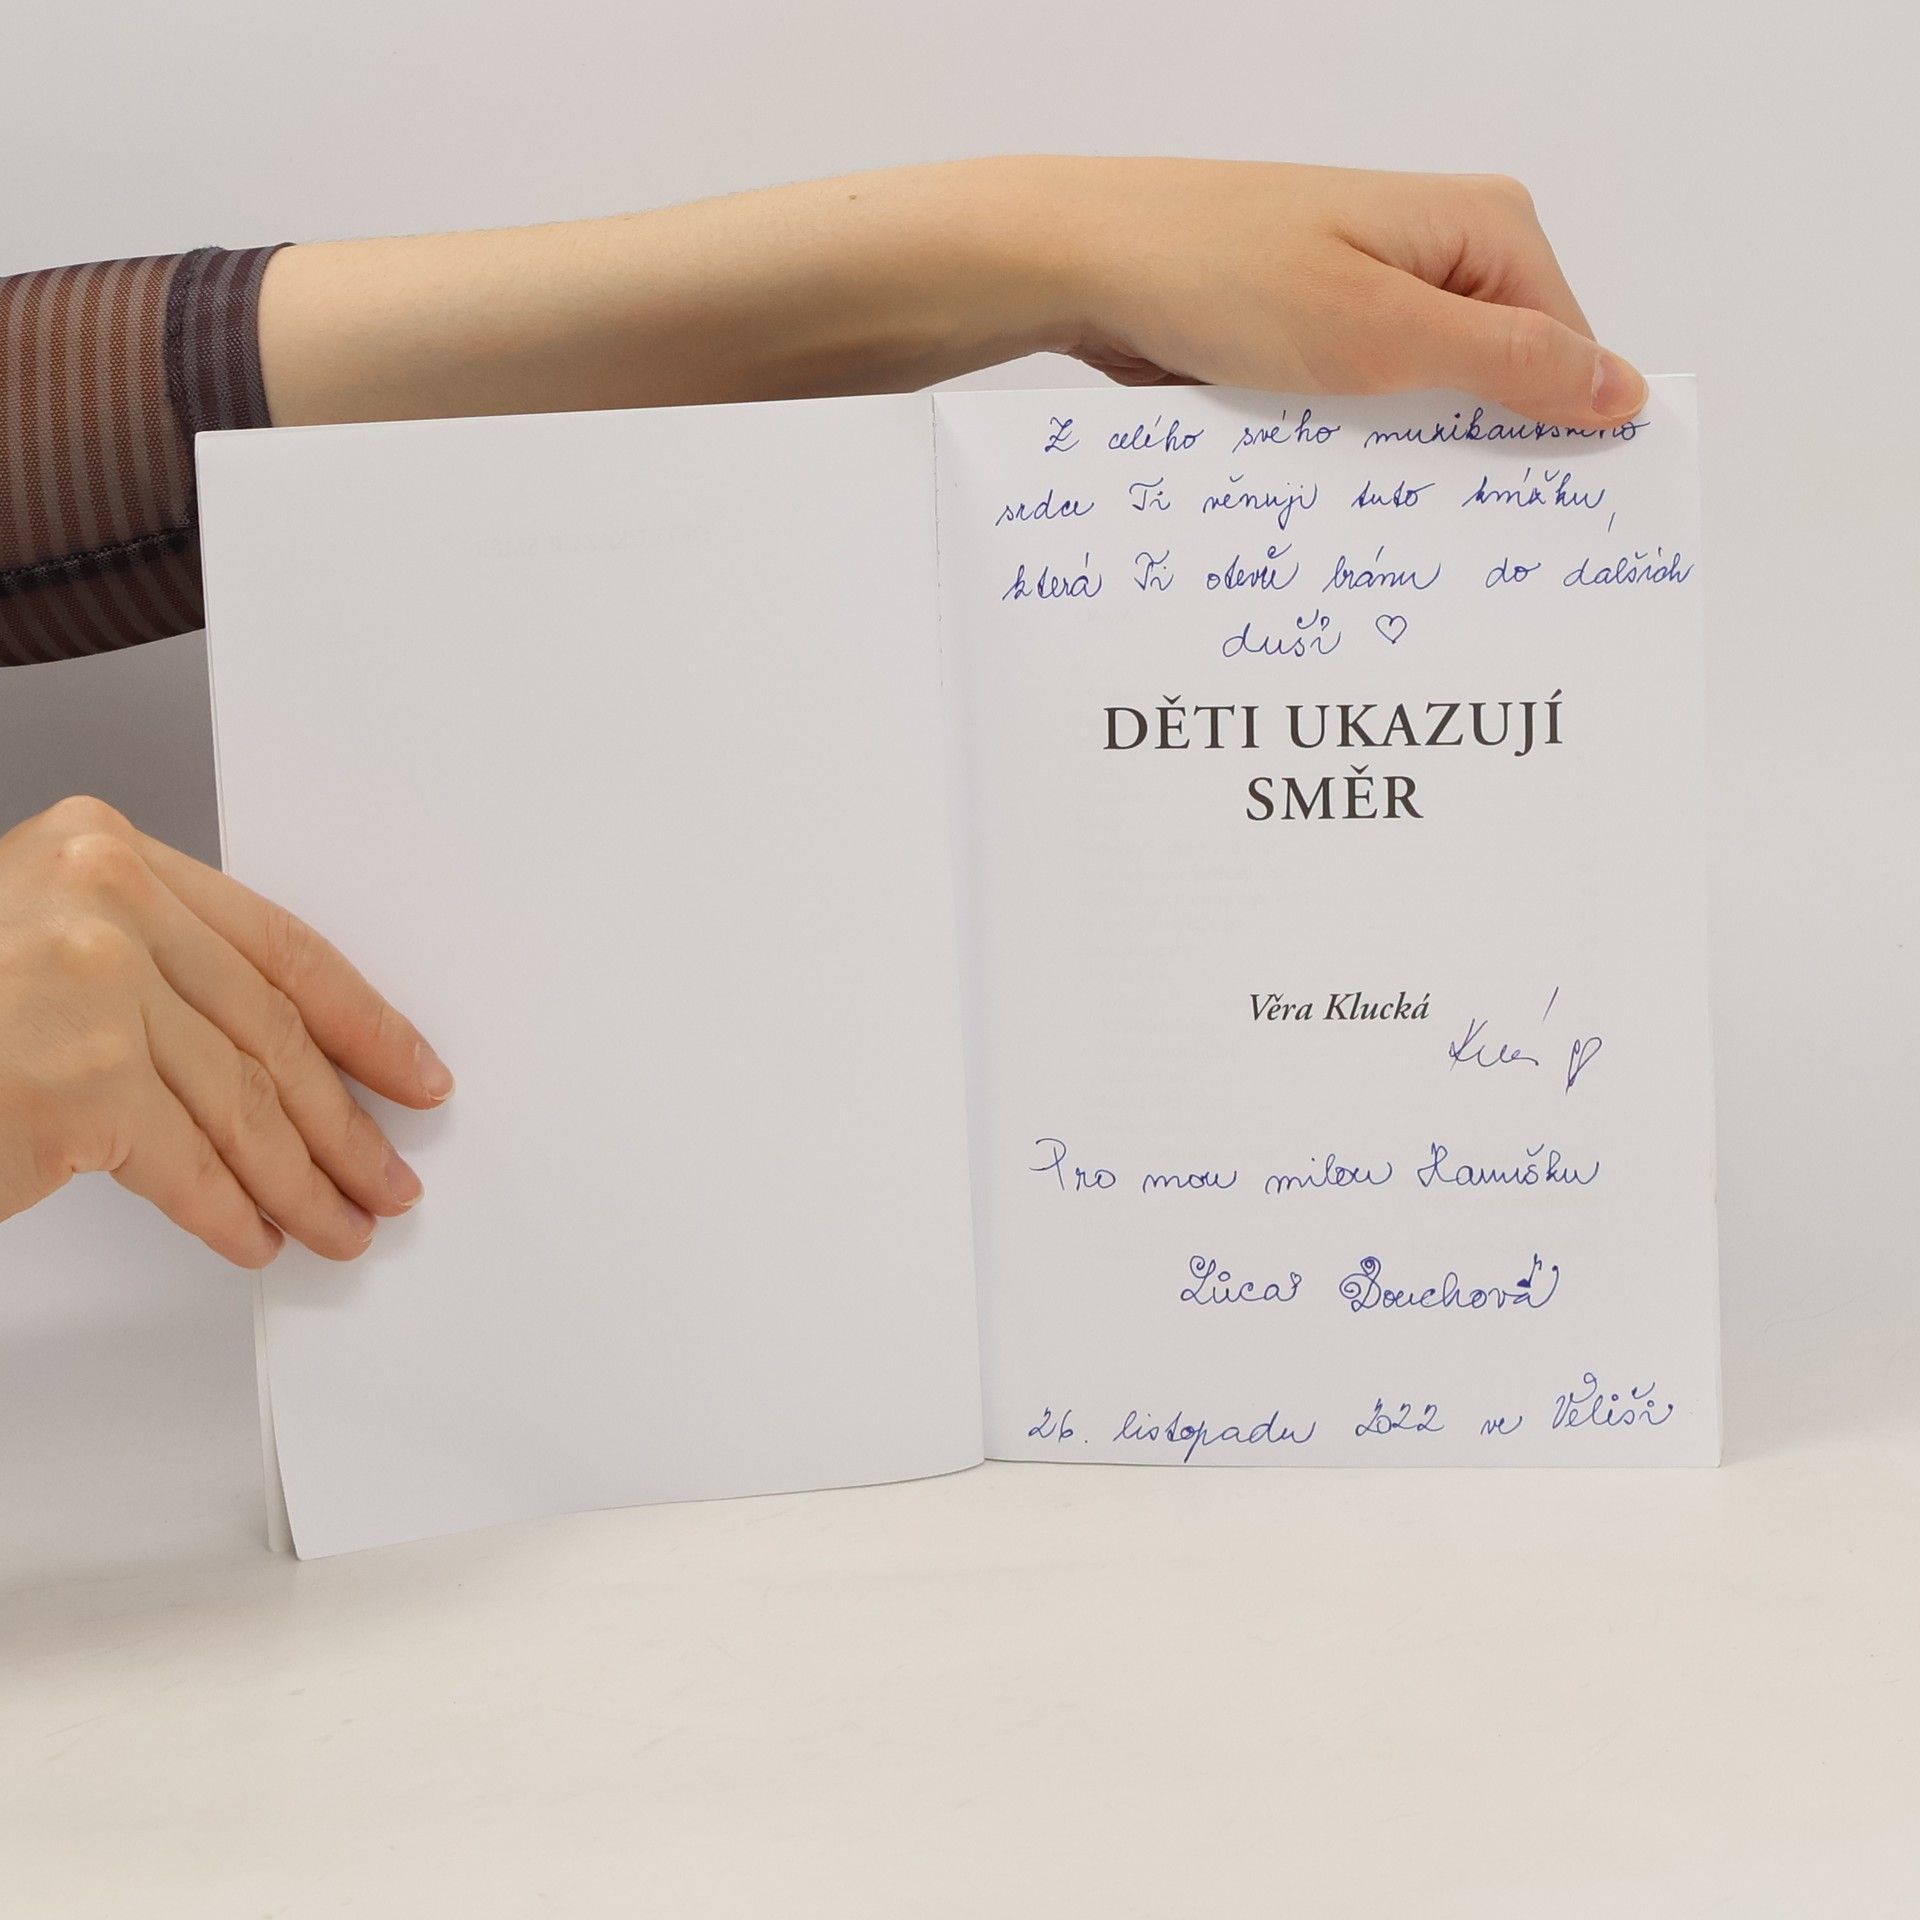 Z celého svého muzikantského
srdce Ti věnuji tuto knížku,
která Ti otevře bránu do dalších
duší ♡
DĚTI UKAZUJÍ
SMĚR
Věra Klucká
Pro mou milou Hanušku
Lůca Douchová
26. listopadu 2022 ve Veliši